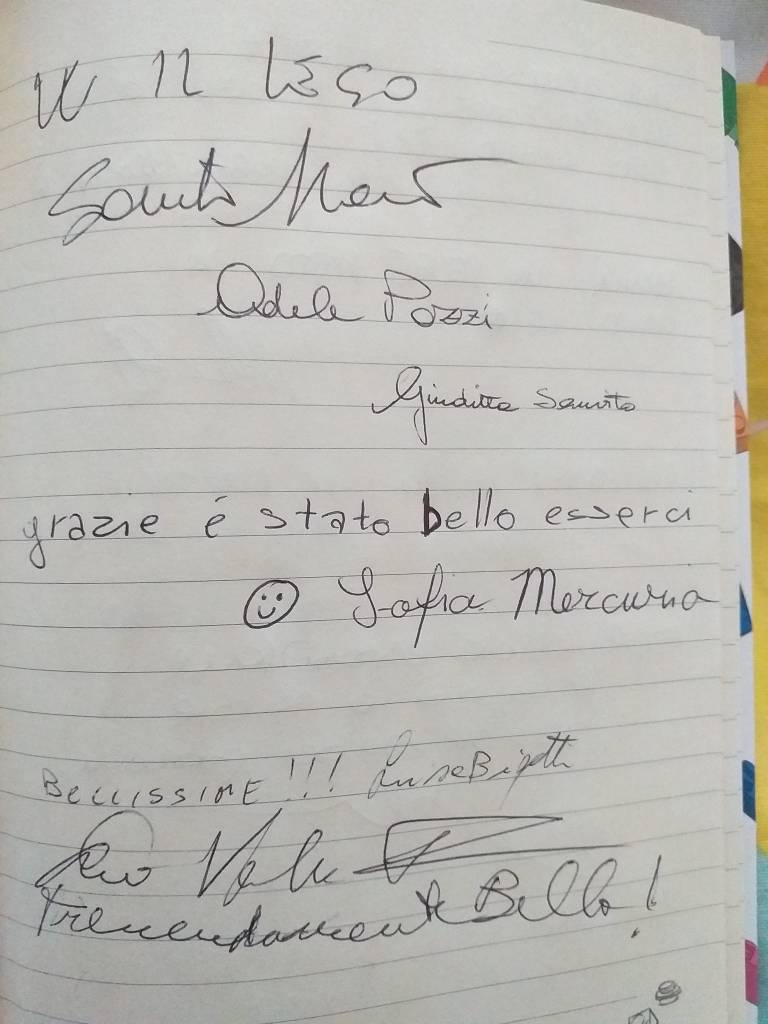 W IL LEGO
Adele Pozzi
Giuditta Sanvito
grazie é stato bello esserci
Sofia Mercurio
BELLISSIME !!! Luisa
Tremendamente Bello!